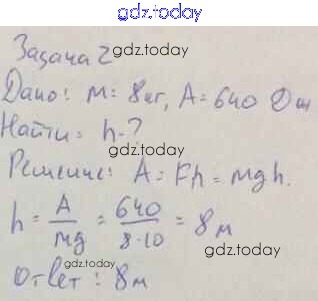 gdz.today
Задача 2
gdz.today
Дано: m = 8 кг, A = 640 Дж
Найти: h - ?
gdz.today
Решение: A = Fh = mgh.
h = A/mg = 640/8·10 = 8 м
gdz.today
gdz.today
Ответ: 8 м